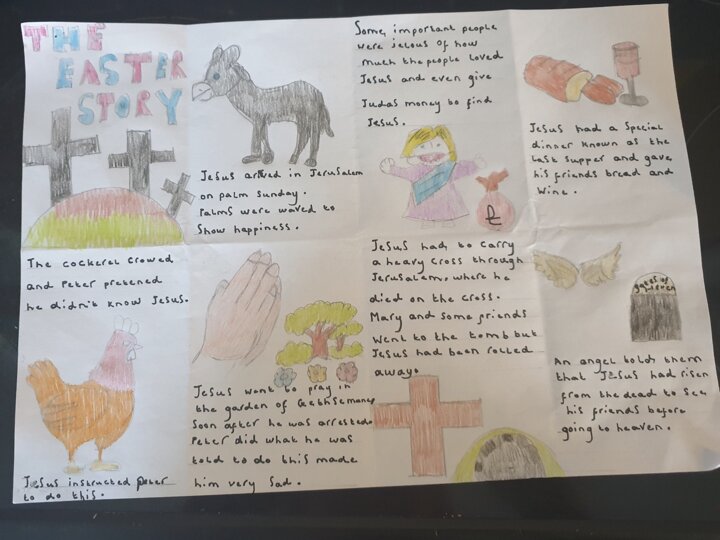 THE
EASTER
STORY
Jesus arrived in Jerusalem
on palm sunday.
Palms were waved to
show happiness.
Some important people
were jelous of how
much the people loved
Jesus and even give
Judas money to find
Jesus.
£
Jesus had a special
dinner known as the
last supper and gave
his friends bread and
wine.
The cockerel crowed
and Peter pretened
he didn't know Jesus.
Jesus instructed Peter
to do this.
Jesus went to pray in
the garden of Gethsemane
Soon after he was arrested.
Peter did what he was
told to do this made
him very sad.
Jesus had to carry
a heavy cross through
Jerusalem, where he
died on the cross.
Mary and some friends
went to the tomb but
Jesus had been rolled
away.
gates of
heaven
An angel tolds them
that Jesus had risen
from the dead to see
his friends before
going to heaven.